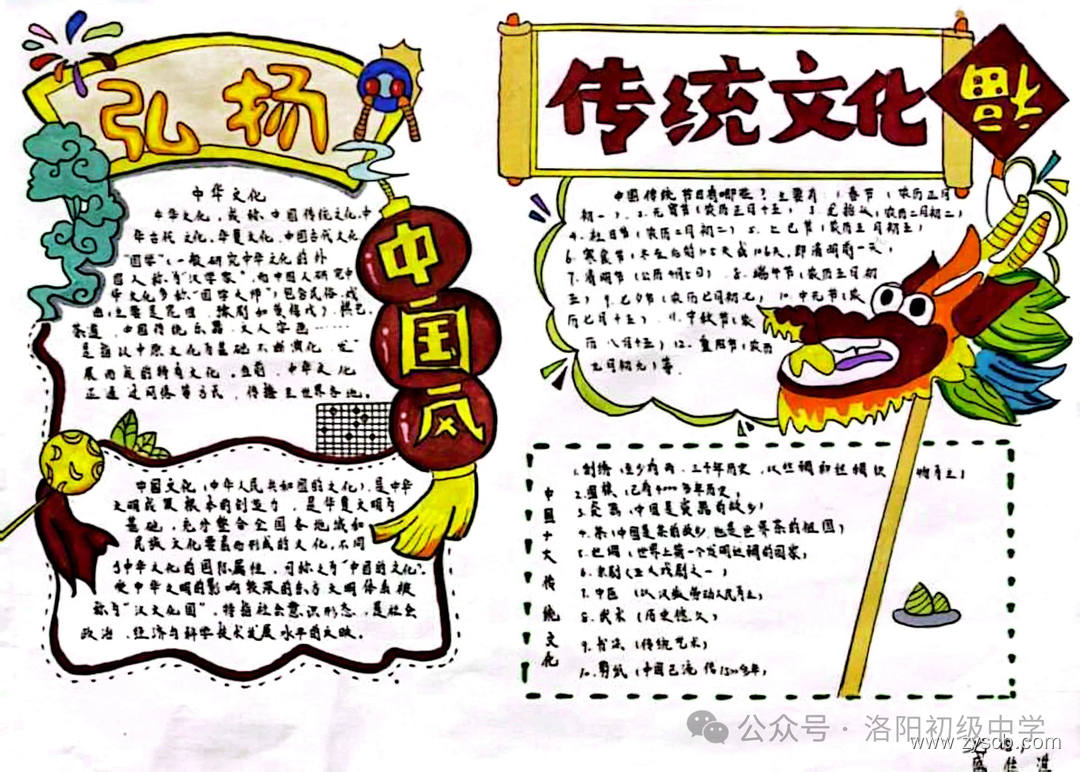 弘扬
中华文化
中华文化，或称中国传统文化、中
华古代文化、华夏文化、中国古代文化、
"国学"（一般研究中华文化的外
国人称为"汉学家"，而中国人研究中
华文化多称"国学大师"）包含民俗、戏
曲（主要是昆曲、豫剧和黄梅戏）、棋艺、
茶道、中国传统乐器、文人字画……
是指以中原文化为基础不断演化、发
展而成的特有文化。当前，中华文化
正通过网络等方式，传播至世界各地。
中国风
中国文化（中华人民共和国的文化），是中华
文明成果根本的创造力，是华夏文明为
基础，充分整合全国各地域和
民族文化要素而形成的文化。不同
于中华文化的国际属性，可称之为"中国的文化"。
受中华文明的影响较深的东方文明体系被
称为"汉文化圈"。特指社会意识形态，是社会
政治、经济与科学技术发展水平的反映。
传统文化
福
中国传统节日有哪些？主要有：1春节（农历正月
初一）、2.元宵节（农历正月十五）3.龙抬头（农历二月初二）
4.社日节（农历二月初二）5.上巳节（农历三月初三）
6.寒食节（冬至后的105天或106天，即清明前一天）
7.清明节（公历4月5日）、8.端午节（农历五月初
五）9.七夕节（农历七月初七）10.中元节（农
历七月十五）、11.中秋节（农
历八月十五）12.重阳节（农历
九月初九）等。
中国十大传统文化
2.围棋（已有4000多年历史）
3.瓷器（中国是瓷器的故乡）
4.茶（中国是茶的故乡，也是世界茶的祖国）
5.丝绸（世界上第一个发明丝绸的国家）
6.京剧（三大戏剧之一）
7.中医（以汉族劳动人民为主）
8.武术（历史悠久）
9.书法（传统艺术）
10.剪纸（中国已流传1500多年）
公众号·洛阳初级中学
www.zysco.com